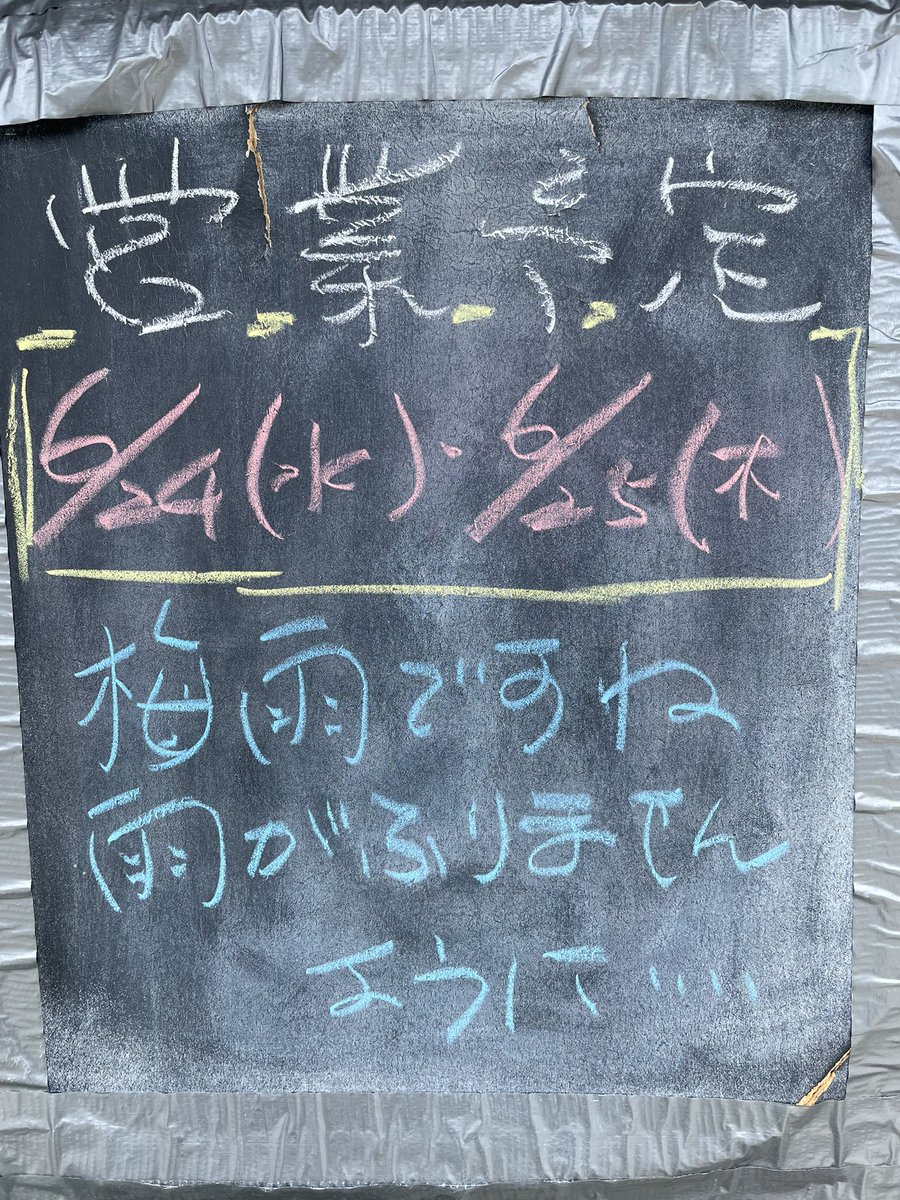 営業予定
6/24(水)・6/25(木)
梅雨ですね
雨がふりません
ように……